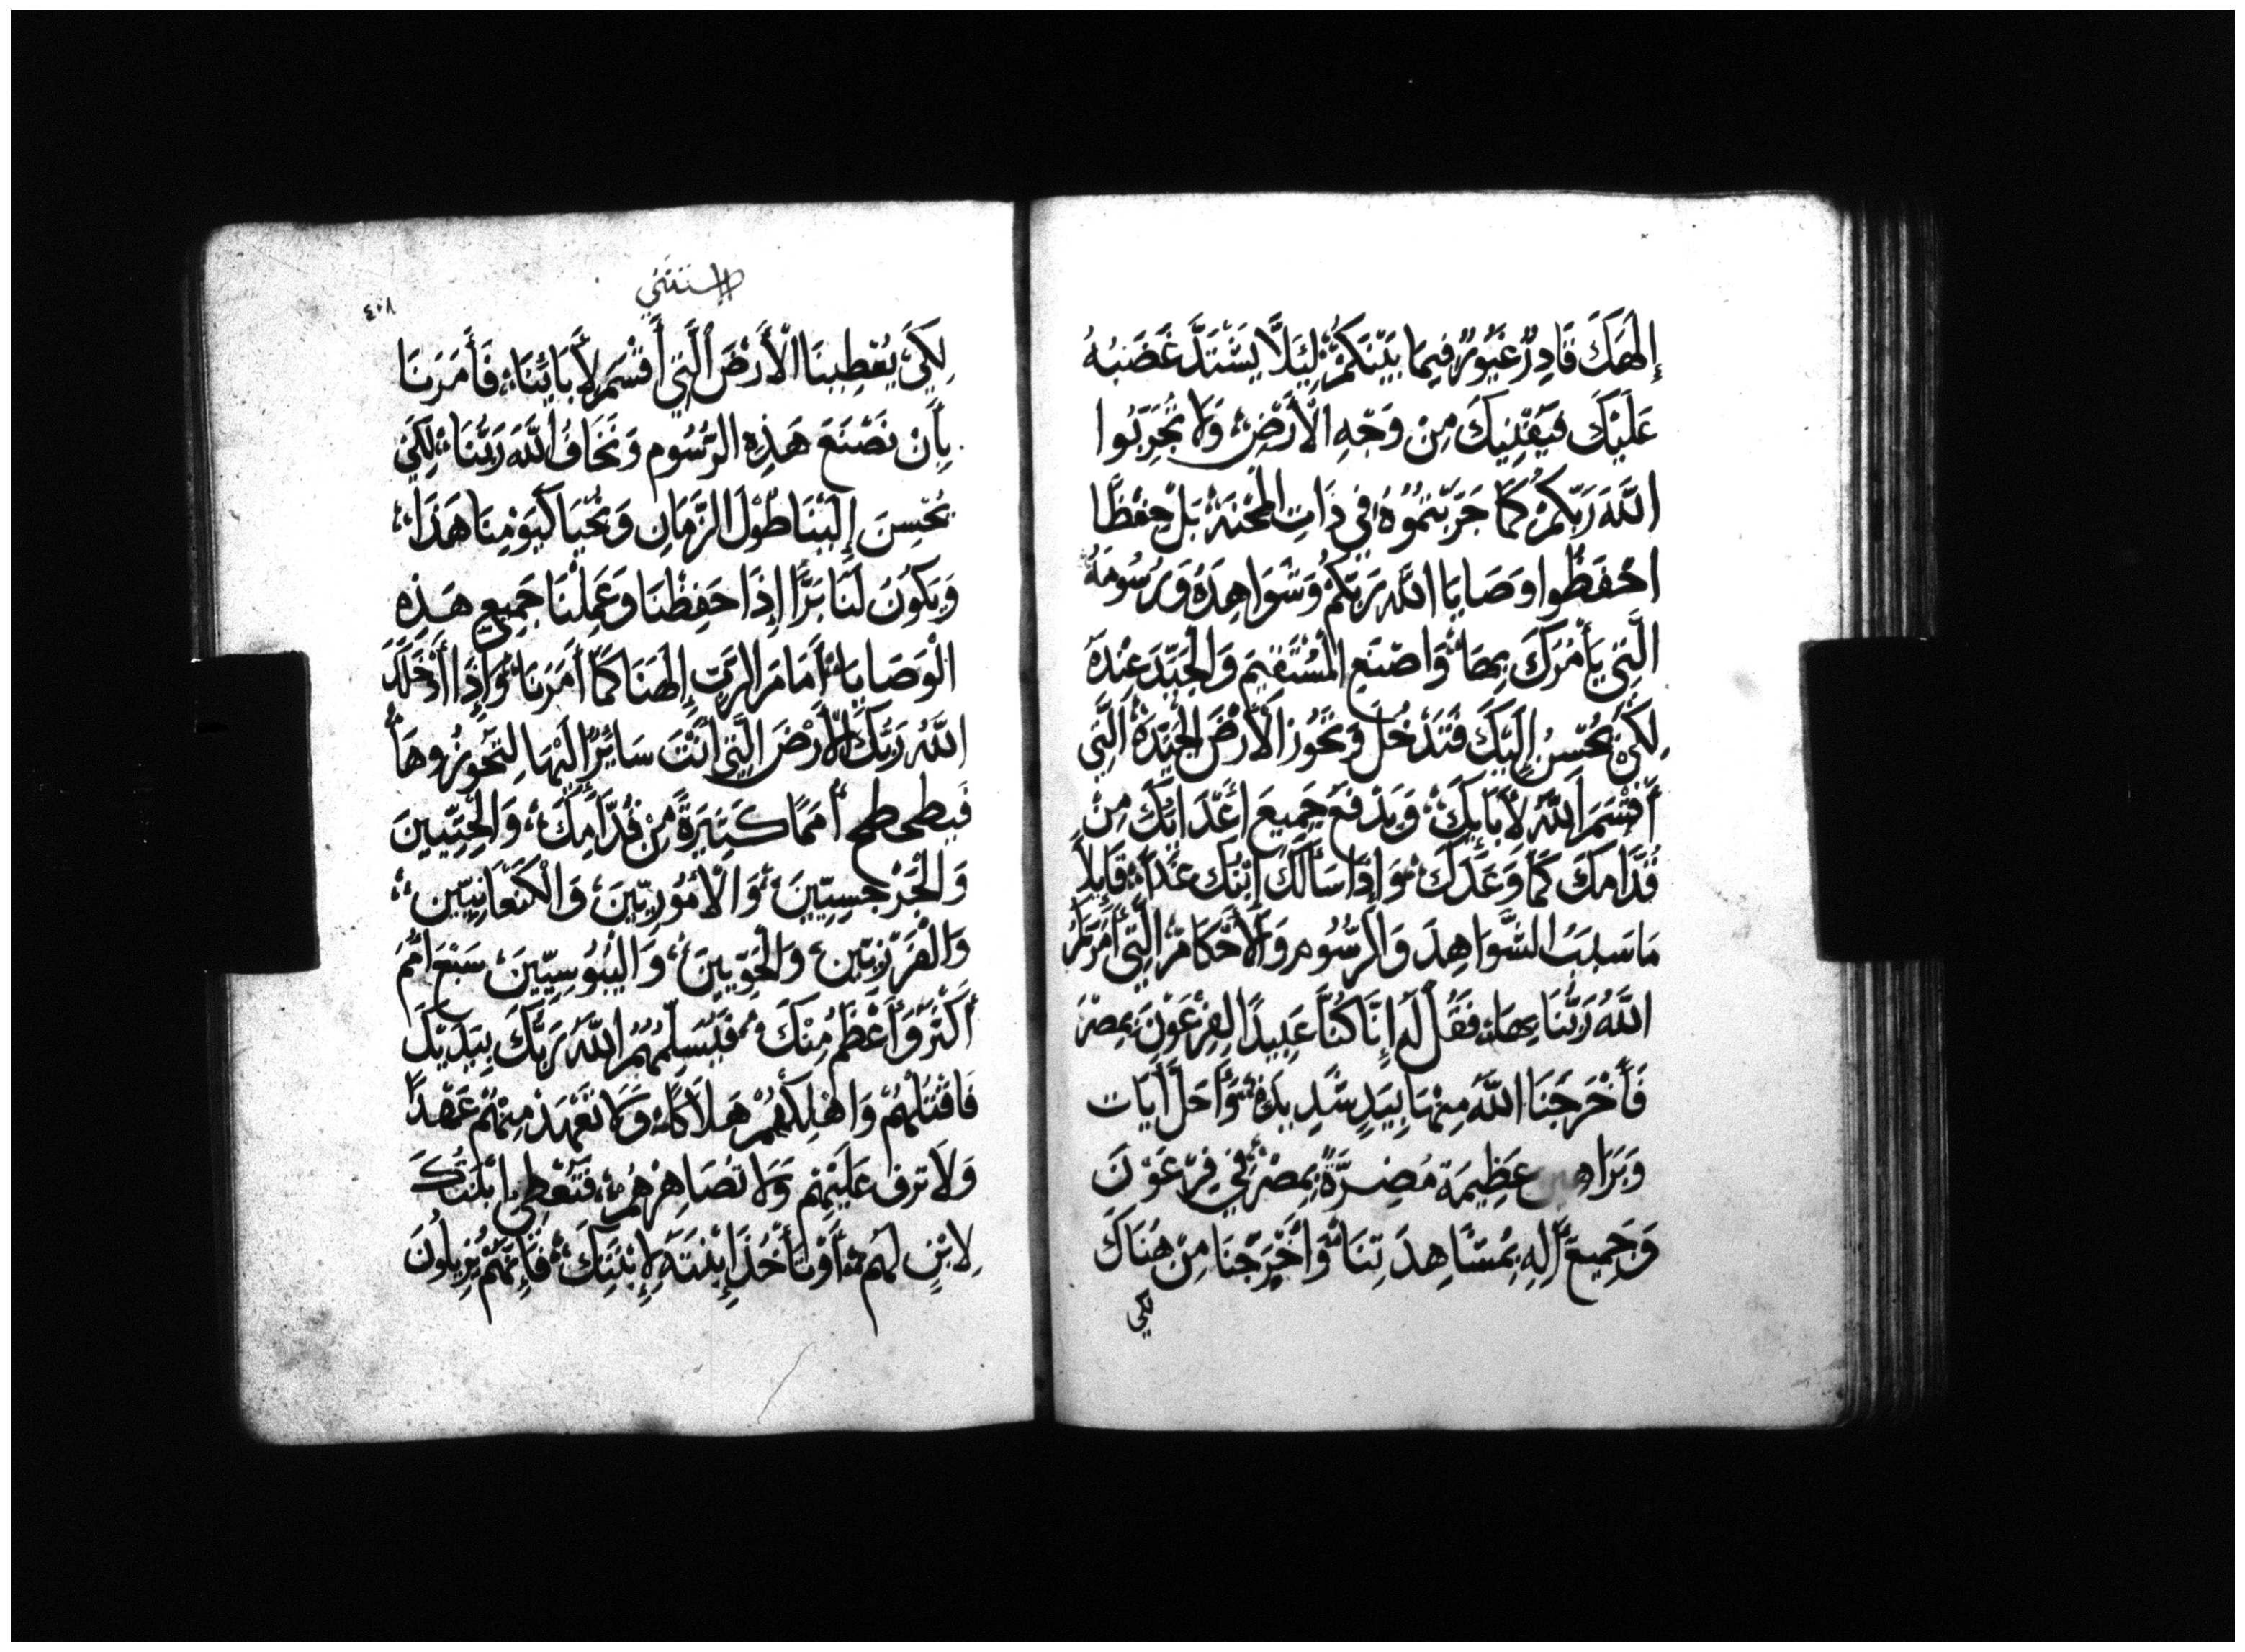 إِلَهَكَ قَادِرٌ غَيُورٌ فِيمَا بَيْنَكُمْ لِيَلَّا يَشْتَدَّ غَضَبُهُ
عَلَيْكَ فَيُفْنِيكَ مِنْ وَجْهِ الْأَرْضِ وَلَا تُجَرِّبُوا
اللَّهَ رَبَّكُمْ كَمَا جَرَّبْتُمُوهُ فِي ذَاتِ الْمِحْنَةِ بَلْ حِفْظًا
احْفَظُوا وَصَايَا اللَّهِ رَبِّكُمْ وَشَوَاهِدَهُ وَرُسُومَهُ
الَّتِي يَأْمُرُكَ بِهَا وَاصْنَعِ الْمُسْتَقِيمَ وَالْجَيِّدَ عِنْدَهُ
لِكَيْ يُحْسِنُ إِلَيْكَ فَتَدْخُلَ وَتَحُوزَ الْأَرْضَ الْجَيِّدَةَ الَّتِي
أَقْسَمَ اللَّهُ لِأَبَايِكَ وَيَدْفَعَ جَمِيعَ أَعْدَايِكَ مِنْ
قُدَّامِكَ كَمَا وَعَدَكَ وَإِذَا سَأَلَكَ ابْنُكَ غَدًا قَايِلًا
مَا سَبَبُ الشَّوَاهِدَ وَالرُّسُومِ وَالْأَحْكَامَ الَّتِي أَمَرَكُمُ
اللَّهُ رَبُّنَا بِهَا فَقُلْ لَهُ إِنَّا كُنَّا عَبِيدًا لِفِرْعَوْنَ بِمِصْرَ
فَأَخْرَجَنَا اللَّهُ مِنْهَا بِيَدٍ شَدِيدَةٍ وَأَحَلَّ آيَاتٍ
وَبَرَاهِينَ عَظِيمَةً مُضِرَّةً بِمِصْرَ فِي فِرْعَوْنَ
وَجَمِيعَ آلِهِ بِمُشَاهِدَتِنَا وَأَخْرَجَنَا مِنْ هُنَاكَ
لكي
الاستثنى
٤٠٨
لِكَيْ يُعْطِينَا الْأَرْضَ الَّتِي أَقْسَمَ لِأَبَائِنَا فَأَمَرَنَا
بِأَنْ نَصْنَعَ هَذِهِ الرُّسُومِ وَنَخَافُ اللَّهَ رَبَّنَا لِكَيْ
يُحْسِنَ إِلَيْنَا طُولَ الزَّمَانِ وَنَحْيَا كَيَوْمِنَا هَذَا
وَيَكُونُ لَنَا بَرًّا إِذَا حَفِظْنَا وَعَمِلْنَا جَمِيعِ هَذِهِ
الْوَصَايَا أَمَامَ الرَّبِّ إِلَهَنَا كَمَا أَمَرَنَا وَإِذَا أَدْخَلَكَ
اللَّهُ رَبُّكَ الْأَرْضَ الَّتِي أَنْتَ سَائِرٌ إِلَيْهَا لِتَحُوزُوهَا
فَيُطَحْطِحُ أُمَمًا كَثِيرَةً مِنْ قُدَّامِكَ وَالْحِتِّيِينَ
وَالْجَرْجِسِيِّينَ وَالْأَمُورِيِّينَ وَالْكَنْعَانِيِّينَ
وَالْفَرَزِيِّينَ وَالْحَوِّيِينَ وَالْيَبُوسِيِّينَ سَبْعَ أُمَمٍ
أَكْثَرَ وَأَعْظَمَ مِنْكَ فَيُسَلِّمُهُمُ اللَّهُ رَبُّكَ بِيَدَيْكَ
فَاقْتُلْهُمْ وَاهْلِكْهُمْ هَلَاكًا وَلَا تَعْهَدْ مِنْهُمْ عَهْدًا
وَلَا تَرِفْ عَلَيْهِمْ وَلَا تُصَاهِرْهُمْ فَتُعْطِي ابْنَتَكَ
لِابْنٍ لَهُمْ أَوْ تَأْخُذَ إِبْنَتَهُ لِإِبْنِكَ فَإِنَّهُمْ يُزِيلُونَ